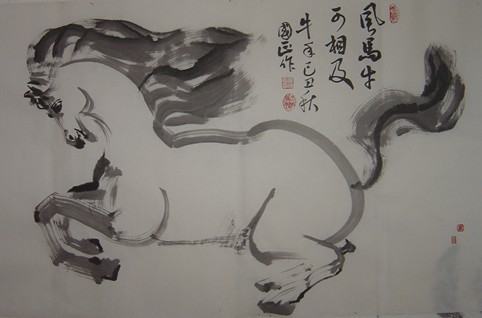 風馬牛
可相及
牛年己丑秋
國正作